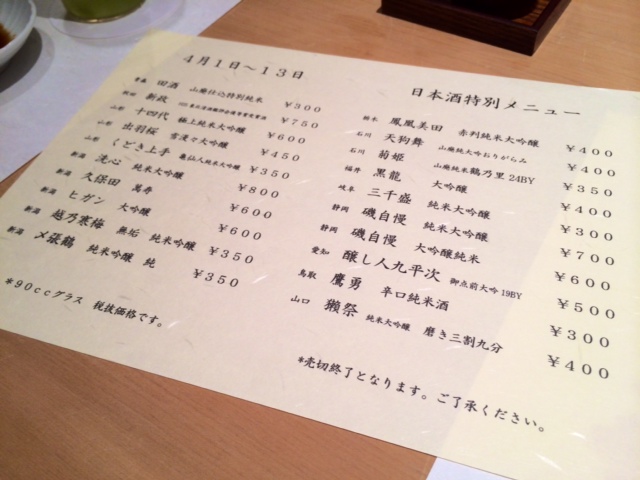 4月1日〜13日
青森 田酒 山廃仕込特別純米 ¥300
秋田 新政 ¥750
山形 十四代 極上純米大吟醸 ¥600
山形 出羽桜 雪漫々大吟醸 ¥450
山形 くどき上手 亀仙人純米大吟醸 ¥350
新潟 洗心 純米大吟醸 ¥800
新潟 久保田 萬寿 ¥600
新潟 ヒガン 大吟醸 ¥600
新潟 越乃寒梅 無垢 純米吟醸 ¥350
新潟 〆張鶴 純米吟醸 純 ¥350
*90ccグラス 税抜価格です。
日本酒特別メニュー
栃木 鳳凰美田 赤判純米大吟醸 ¥400
石川 天狗舞 山廃純米大吟おりがらみ ¥400
石川 菊姫 山廃純米鶴乃里24BY ¥350
福井 黒龍 大吟醸 ¥400
岐阜 三千盛 純米大吟醸 ¥300
静岡 磯自慢 純米大吟醸 ¥700
静岡 磯自慢 大吟醸純米 ¥600
愛知 醸し人九平次 御点前大吟19BY ¥500
鳥取 鷹勇 辛口純米酒 ¥300
山口 獺祭 純米大吟醸 磨き三割九分 ¥400
*売切終了となります。ご了承ください。